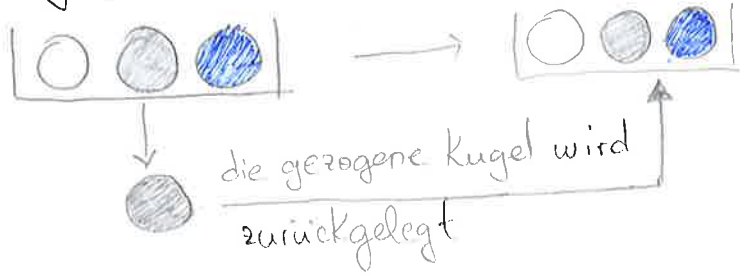 die gezogene Kugel wird
zurückgelegt